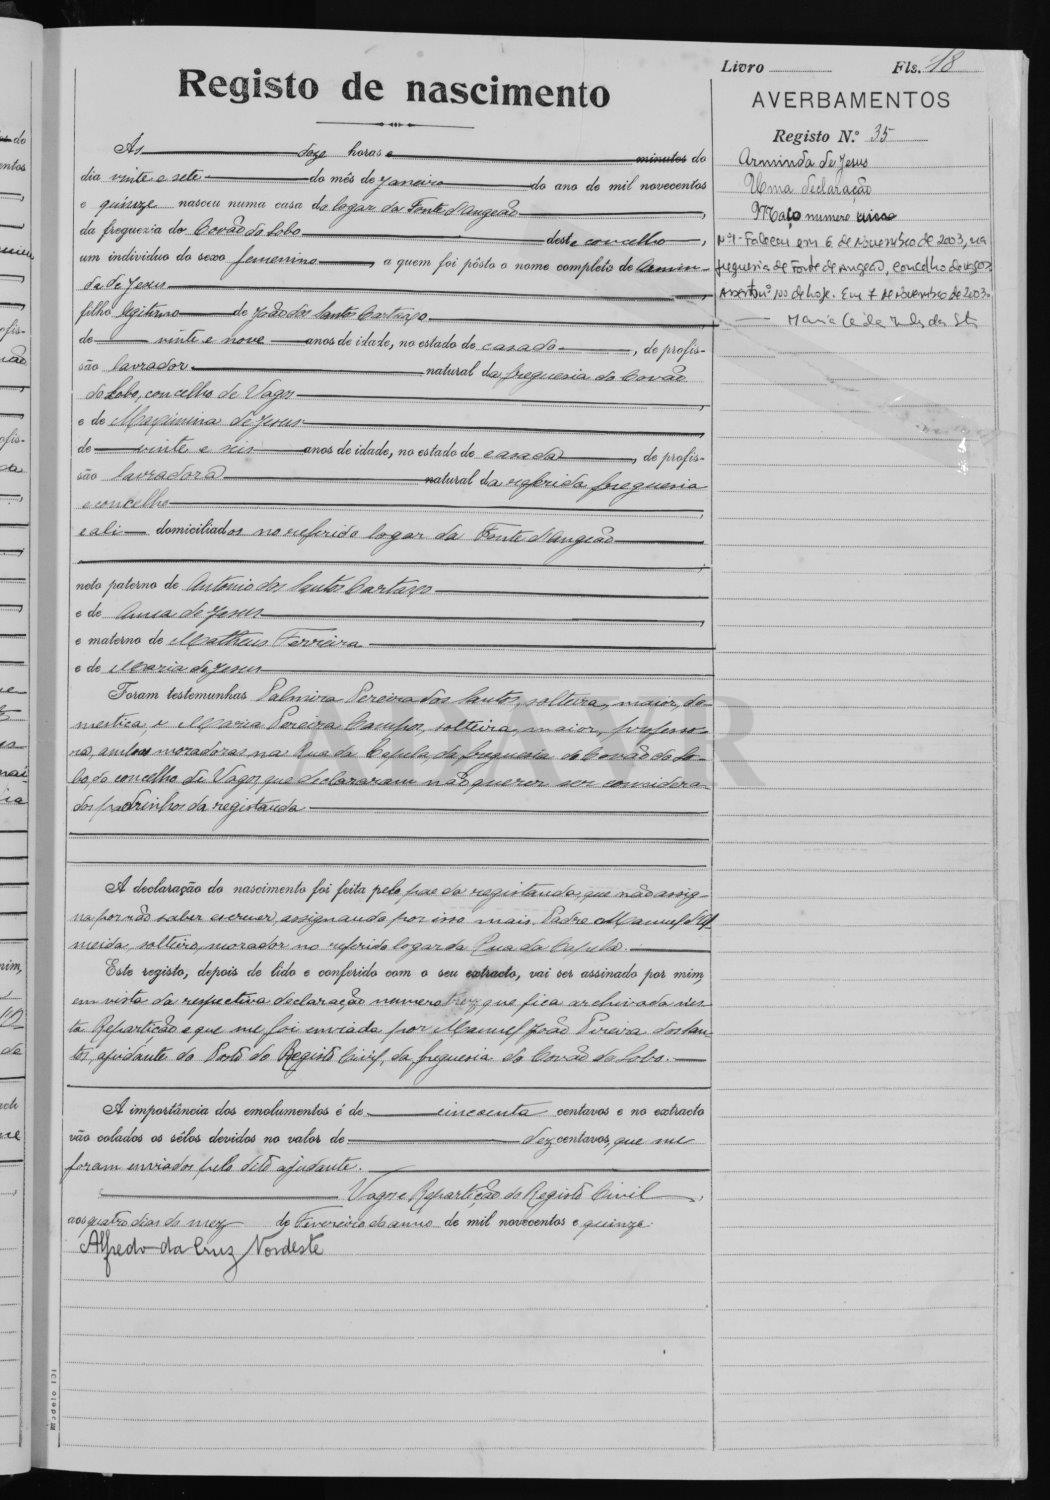 Livro Fls. 18
Registo de nascimento
AVERBAMENTOS
Registo N.º 35
Arminda de Jesus
Uma declaração
Maço numero
Nº1 - Faleceu em 6 de Novembro de 2003, na
freguesia de Fonte de Angeão, concelho de Vagos
Assento nº 100 de hoje. Em 7 de Novembro de 2003.
Às doze horas e minutos do
dia vinte e sete do mês de Janeiro do ano de mil novecentos
e quinze nasceu numa casa do logar da Fonte d'Angeão
da freguezia do Covão do Lobo deste concelho,
um individuo do sexo femenino, a quem foi pôsto o nome completo de Armin-
da de Jesus
filho legitimo de João dos Santos Cartaxo
de vinte e nove anos de idade, no estado de casado, de profis-
são lavrador natural da freguesia do Covão
do Lobo, concelho de Vagos
e de Maximina de Jesus
de vinte e seis anos de idade, no estado de casada, de profis-
são lavradora natural da referida freguesia
e concelho
e ali domiciliados no referido logar da Fonte d'Angeão
neto paterno de Antonio dos Santos Cartaxo
e de Anna de Jesus
e materno de Matheus Ferreira
e de Maria de Jesus
Foram testemunhas Palmira Pereira dos Santos, solteira, maior, do-
mestica, e Maria Pereira Campos, solteira, maior, professo-
ra, ambas moradoras na Rua da Capela, da freguesia do Covão do Lo-
bo, do concelho de Vagos, que declararam não querer ser considera-
dos padrinhos da registanda
A declaração do nascimento foi feita pelo pae da registanda, que não assig-
na por não saber escrever, assignando por isso mais Padre Manuel d'Al-
meida, solteiro, morador no referido logar da Rua da Capela.
Este registo, depois de lido e conferido com o seu extracto, vai ser assinado por mim,
em vista da respectiva declaração numero trez que fica archivada nes-
ta Repartição e que me foi enviada por Manuel João Pereira dos San-
tos, ajudante do Posto do Registo Civil, da freguesia do Covão do Lobo.
A importância dos emolumentos é de cincoenta centavos e no extracto
vão colados os sêlos devidos no valor de dez centavos, que me
foram enviados pelo dito ajudante.
Vagos e Repartição do Registo Civil,
aos quatro dias do mez de Fevereiro do anno de mil novecentos e quinze.
Alfredo da Cruz Nordeste